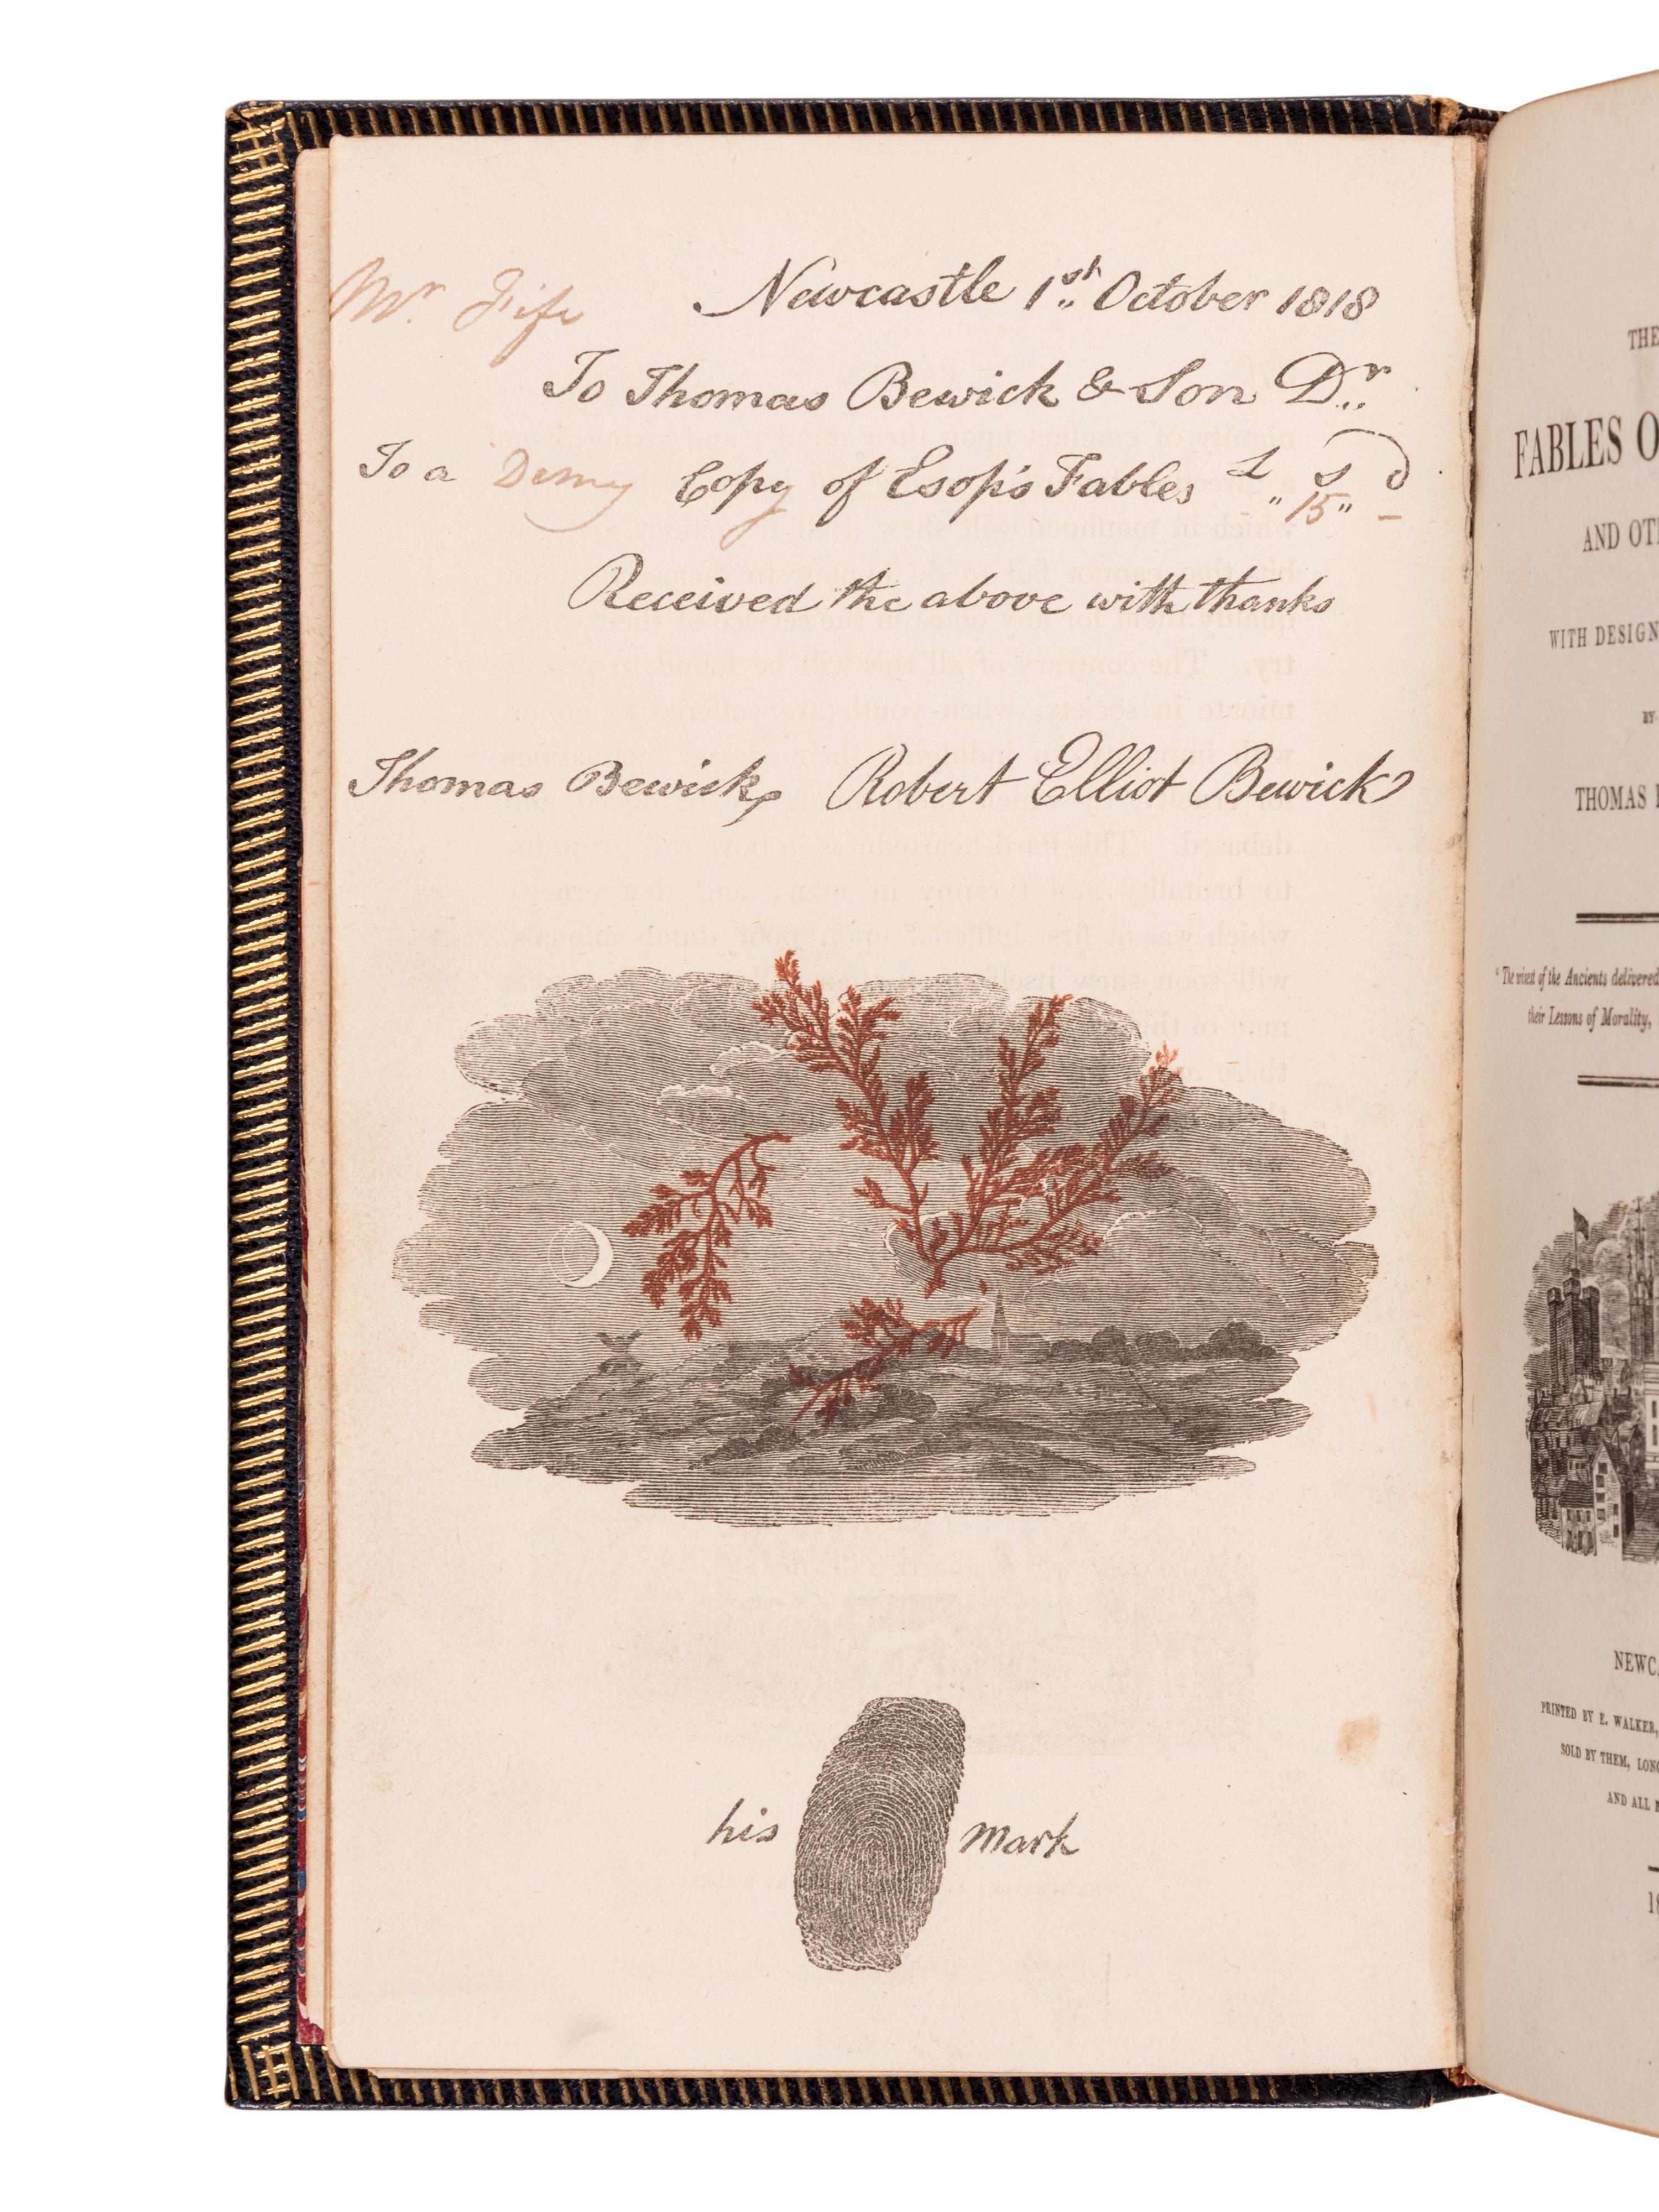 Mr. Fife
Newcastle 1st October 1818
To Thomas Bewick & Son Dr.
To a Demy Copy of Esop's Fables £ " s 15 " d -
Received the above with thanks
Thomas Bewick, Robert Elliot Bewick
his mark
THE
FABLES O
AND OT
WITH DESIGN
BY
THOMAS
"The wisest of the Ancients delivered
their Lessons of Morality,
NEWC
PRINTED BY E. WALKER,
SOLD BY THEM, LON
AND ALL
18